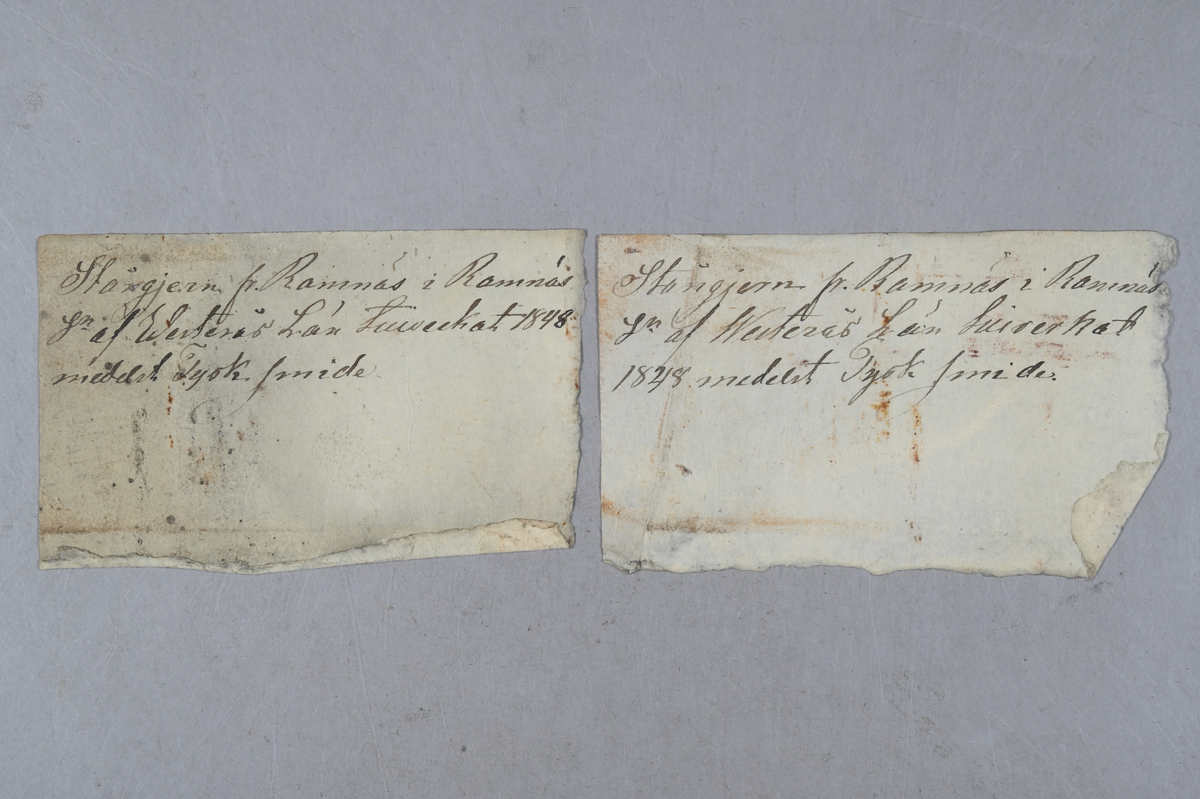 Stångjern fr. Ramnäs i Ramnäs
Sn af Westerås Län tillverkat 1848
medelst Tysk smide.
Stångjern fr. Ramnäs i Ramnäs
Sn af Westerås Län tillverkat
1848 medelst Tysk smide.